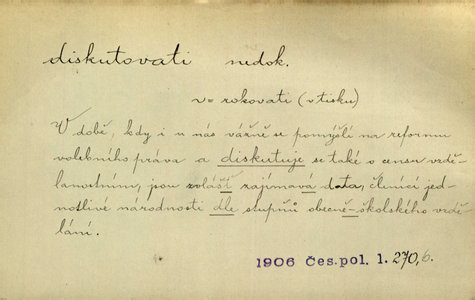 diskutovati nedok.
v= rokovati (v tisku)
V době, kdy i u nás vážně se pomýšlí na reformu
volebního práva a diskutuje se také o censu vzdě-
lanostním, jsou zvlášť zajímavá data, členící jed-
notlivé národnosti dle stupňů obecně-školského vzdě-
lání.
1906 Čes. pol. 1. 270, b.